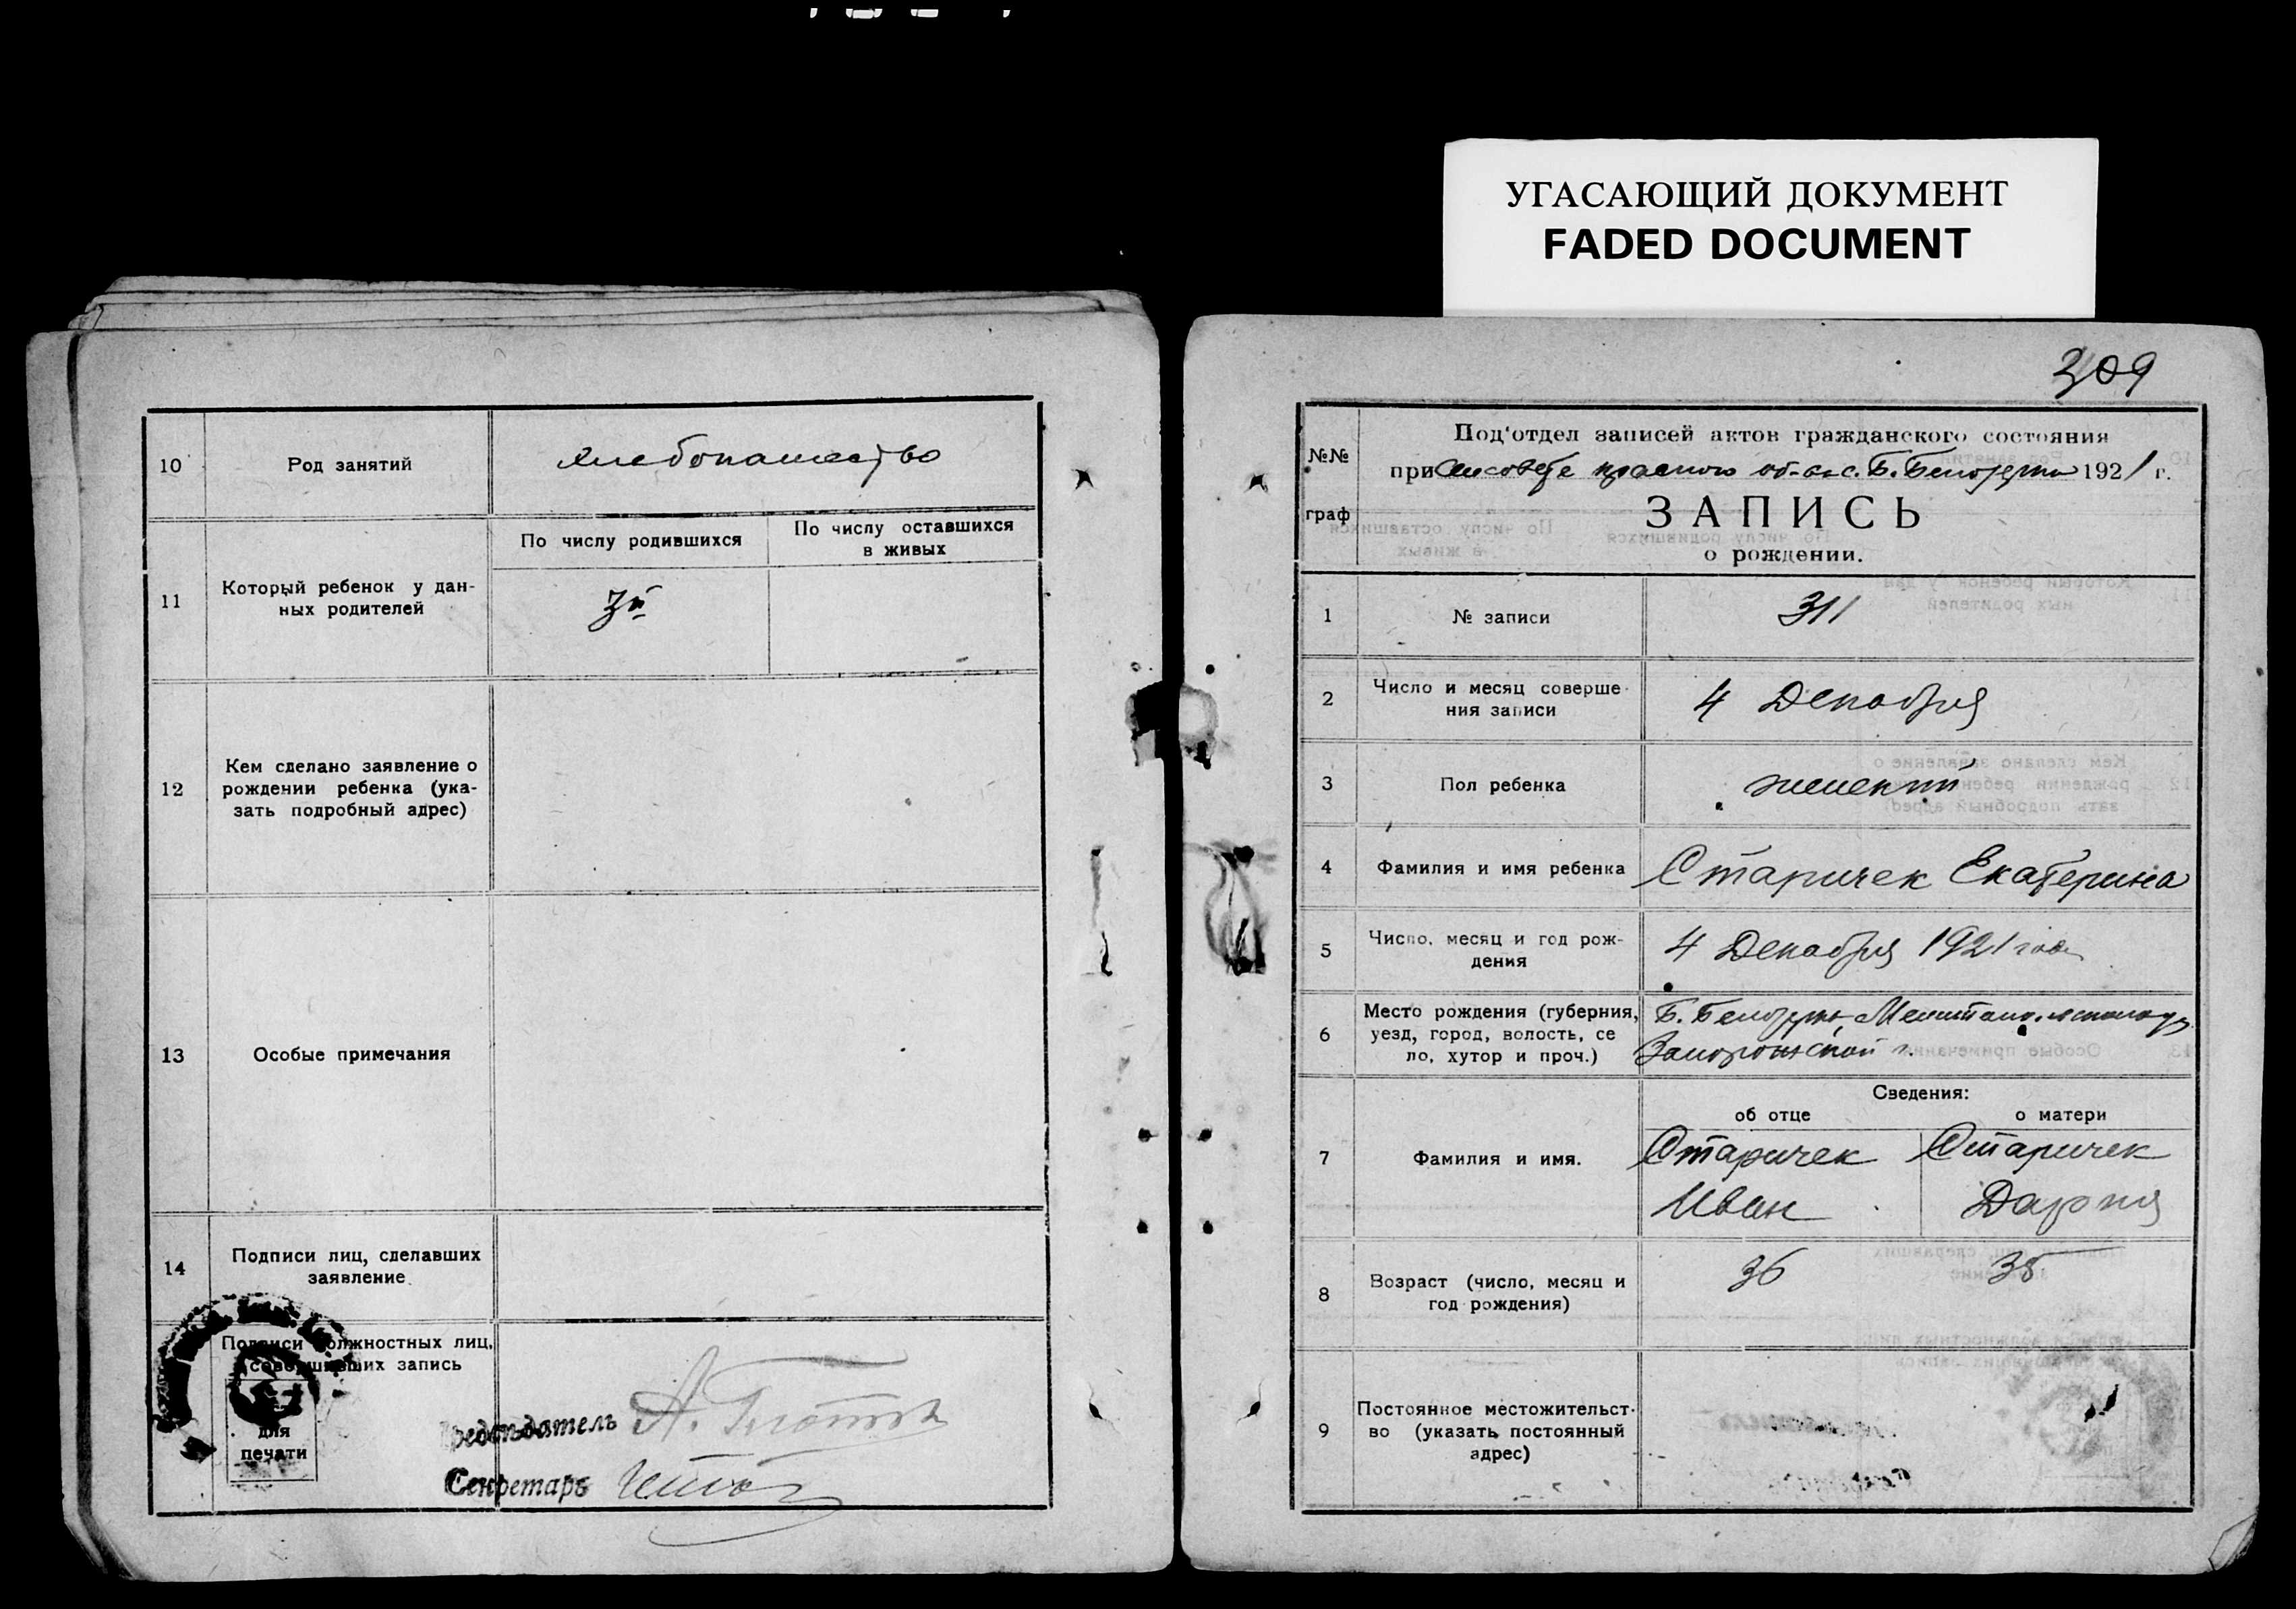 УГАСАЮЩИЙ ДОКУМЕНТ
FADED DOCUMENT
10
Род занятий
хлебопашество
11
Который ребенок у дан-
ных родителей
По числу родившихся
По числу оставшихся
в живых
3й
12
Кем сделано заявление о
рождении ребенка (ука-
зать подробный адрес)
13
Особые примечания
14
Подписи лиц, сделавших
заявление
Подписи должностных лиц,
совершивших запись
для
печати
Председатель А.
Секретарь
309
№№
граф
Под'отдел записей актов гражданского состояния
при с. Б. Белозерка 1921 г.
ЗАПИСЬ
о рождении.
1
№ записи
311
2
Число и месяц соверше-
ния записи
4 Декабря
3
Пол ребенка
женский
4
Фамилия и имя ребенка
Старичек Екатерина
5
Число, месяц и год рож-
дения
4 Декабря 1921 года
6
Место рождения (губерния,
уезд, город, волость, се
ло, хутор и проч.)
Б. Белозерка,
Запорожской г.
Сведения:
об отце
о матери
7
Фамилия и имя.
Старичек
Иван
Старичек
Дария
8
Возраст (число, месяц и
год рождения)
36
35
9
Постоянное местожительст-
во (указать постоянный
адрес)